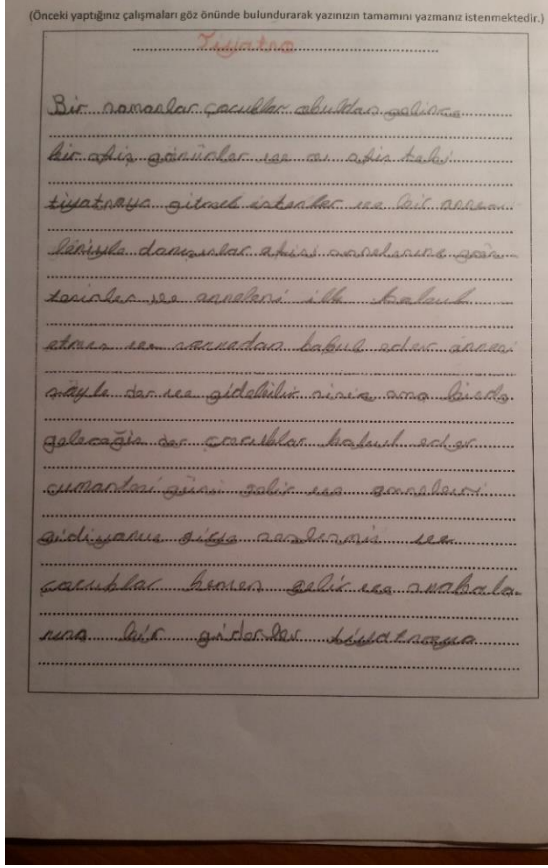 (Önceki yaptığınız çalışmaları göz önünde bulundurarak yazınızın tamamını yazmanız istenmektedir.)
Tiyatro
Bir zamanlar çocuklar okuldan gelince
bir afiş görürler ve afişteki
tiyatroya gitmek isterler ve bir anne
leriyle danışırlar afişi annelerine gös
terirler ve anneleri ilk kabul
etmez ve sonradan kabul eder annesi
şöyle der ve gidebilirsiniz ama bizde
geleceğiz der çocuklar kabul eder
cumartesi günü gelir ve anneleri
gidiyoruz diye seslenmiş ve
çocuklar hemen gelir ve arabala
rına bir giderler tiyatroya